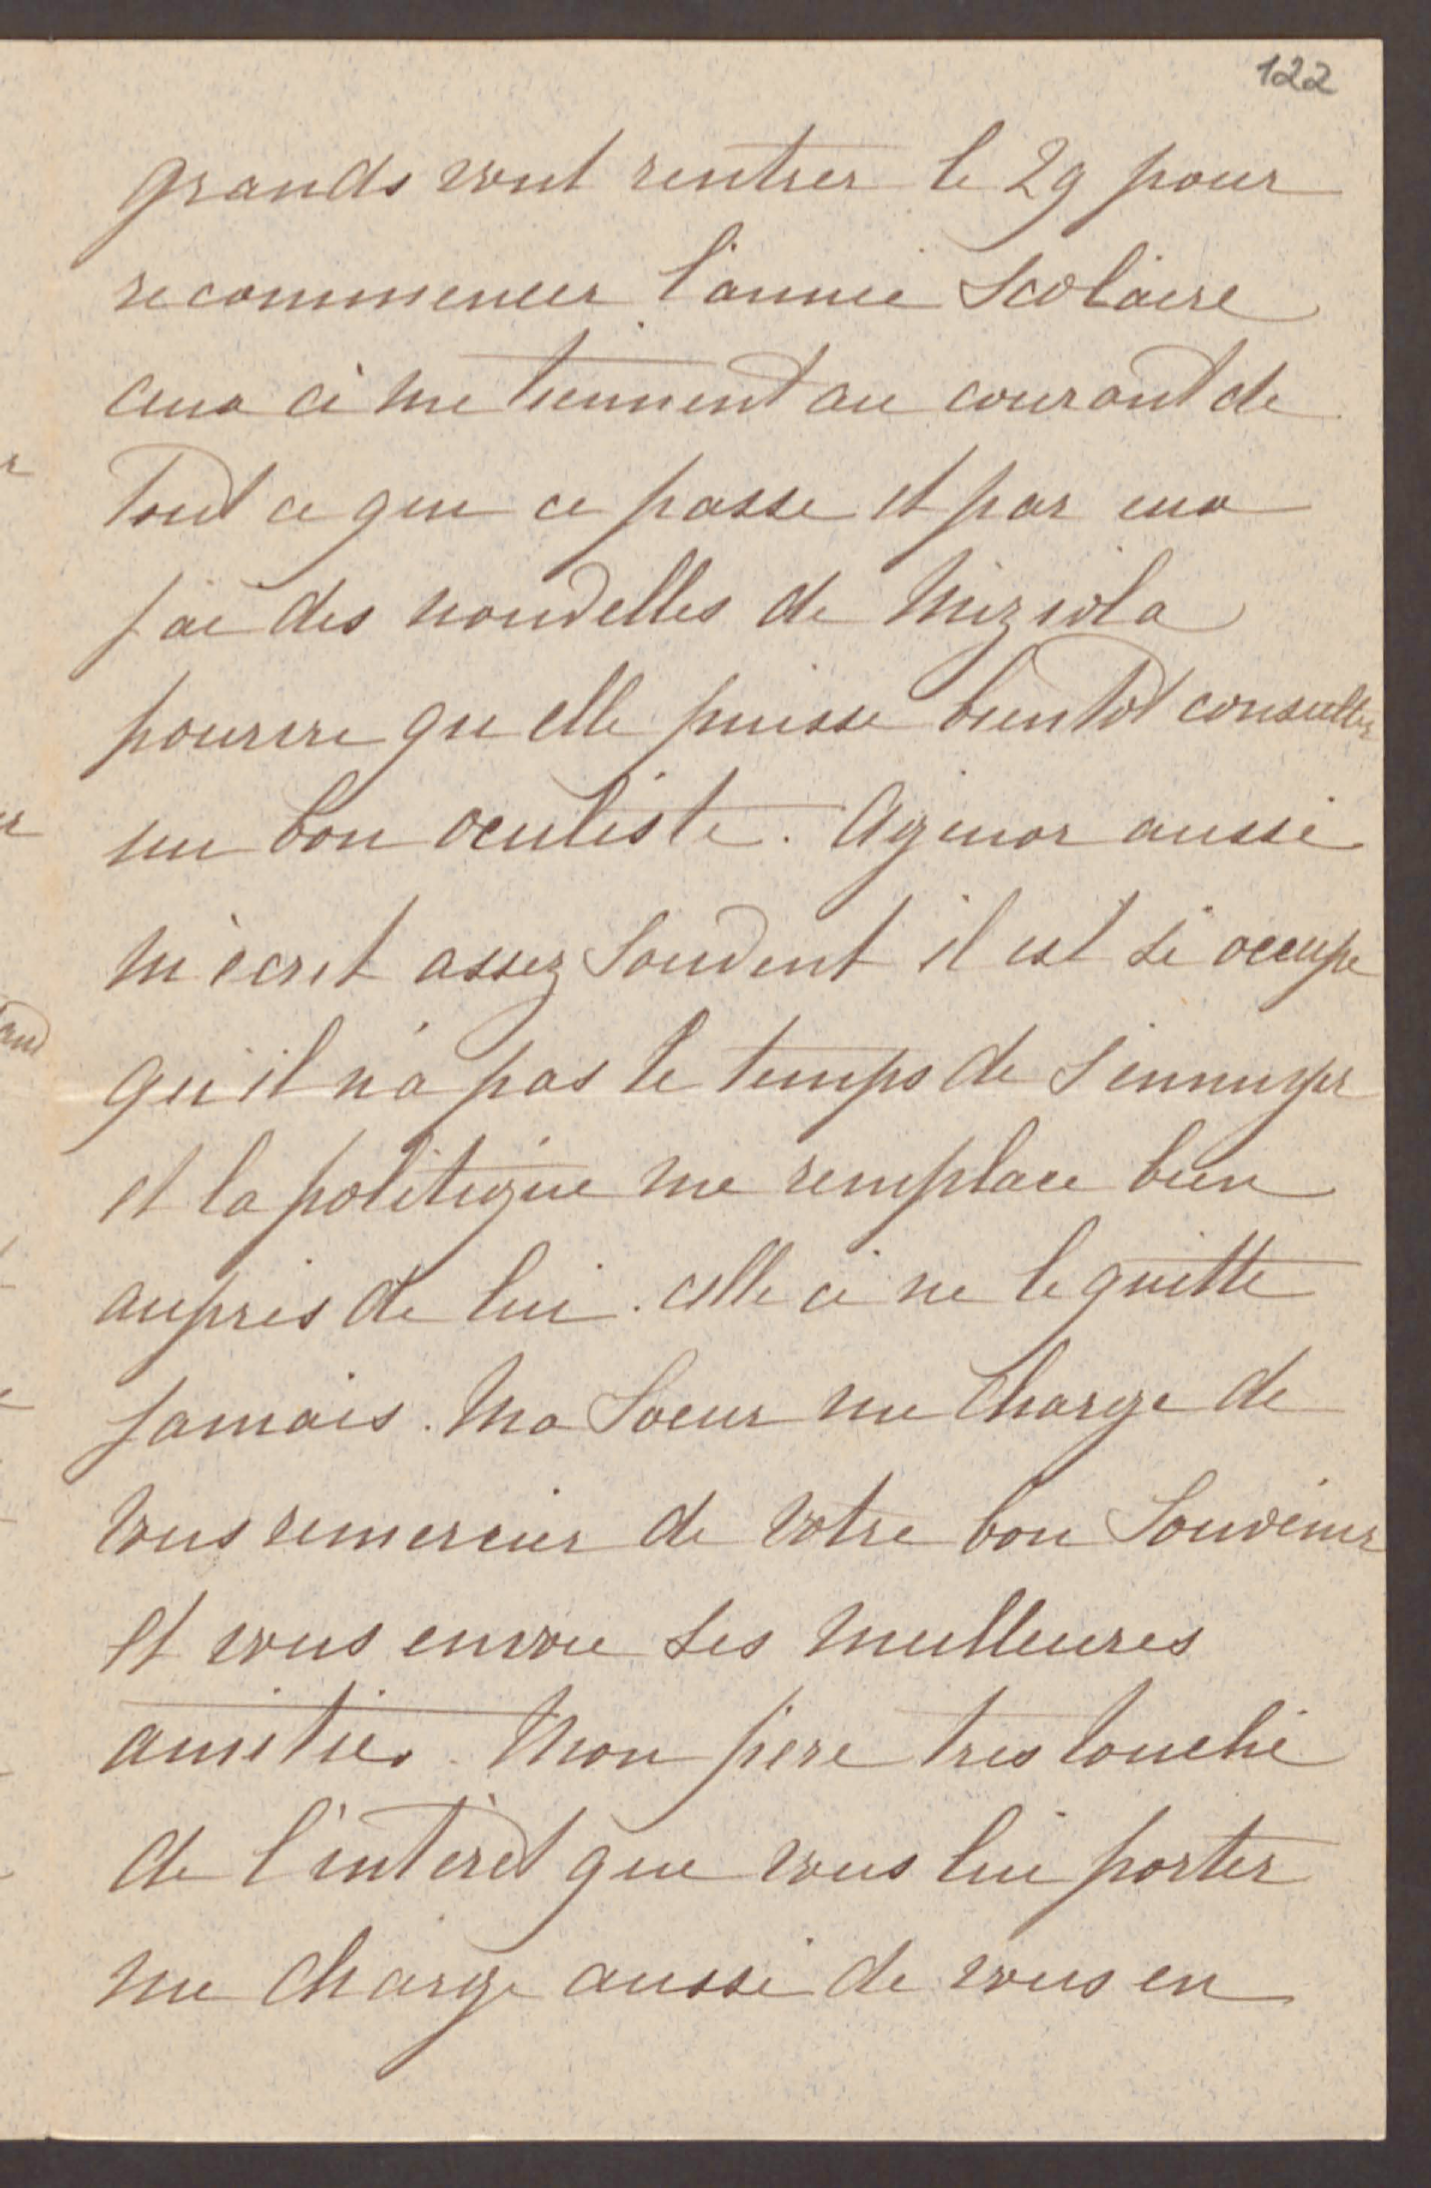 122
grands vont rentrer le 29 pour
recommencer l'année Scolaire
ceux ci me tiennent au courant de
Tout ce que ce passe et par eux
j'ai des nouvelles de Miziola
pourvu qu elle puisse bientot consulter
un bon oculiste. Agenor aussi
m'écrit assez Souvent il est si occupé
qu'il n'a pas le temps de S'ennuyer
et la politique me remplace bien
auprès de lui. celle ci ne le quitte
Jamais. Ma Soeur me Charge de
vous remercier de votre bon Souvenir
et vous envoie ses meilleures
amitiés. Mon père tres touché
de l'intèrêt que vous lui porter
me charge aussi de vous en